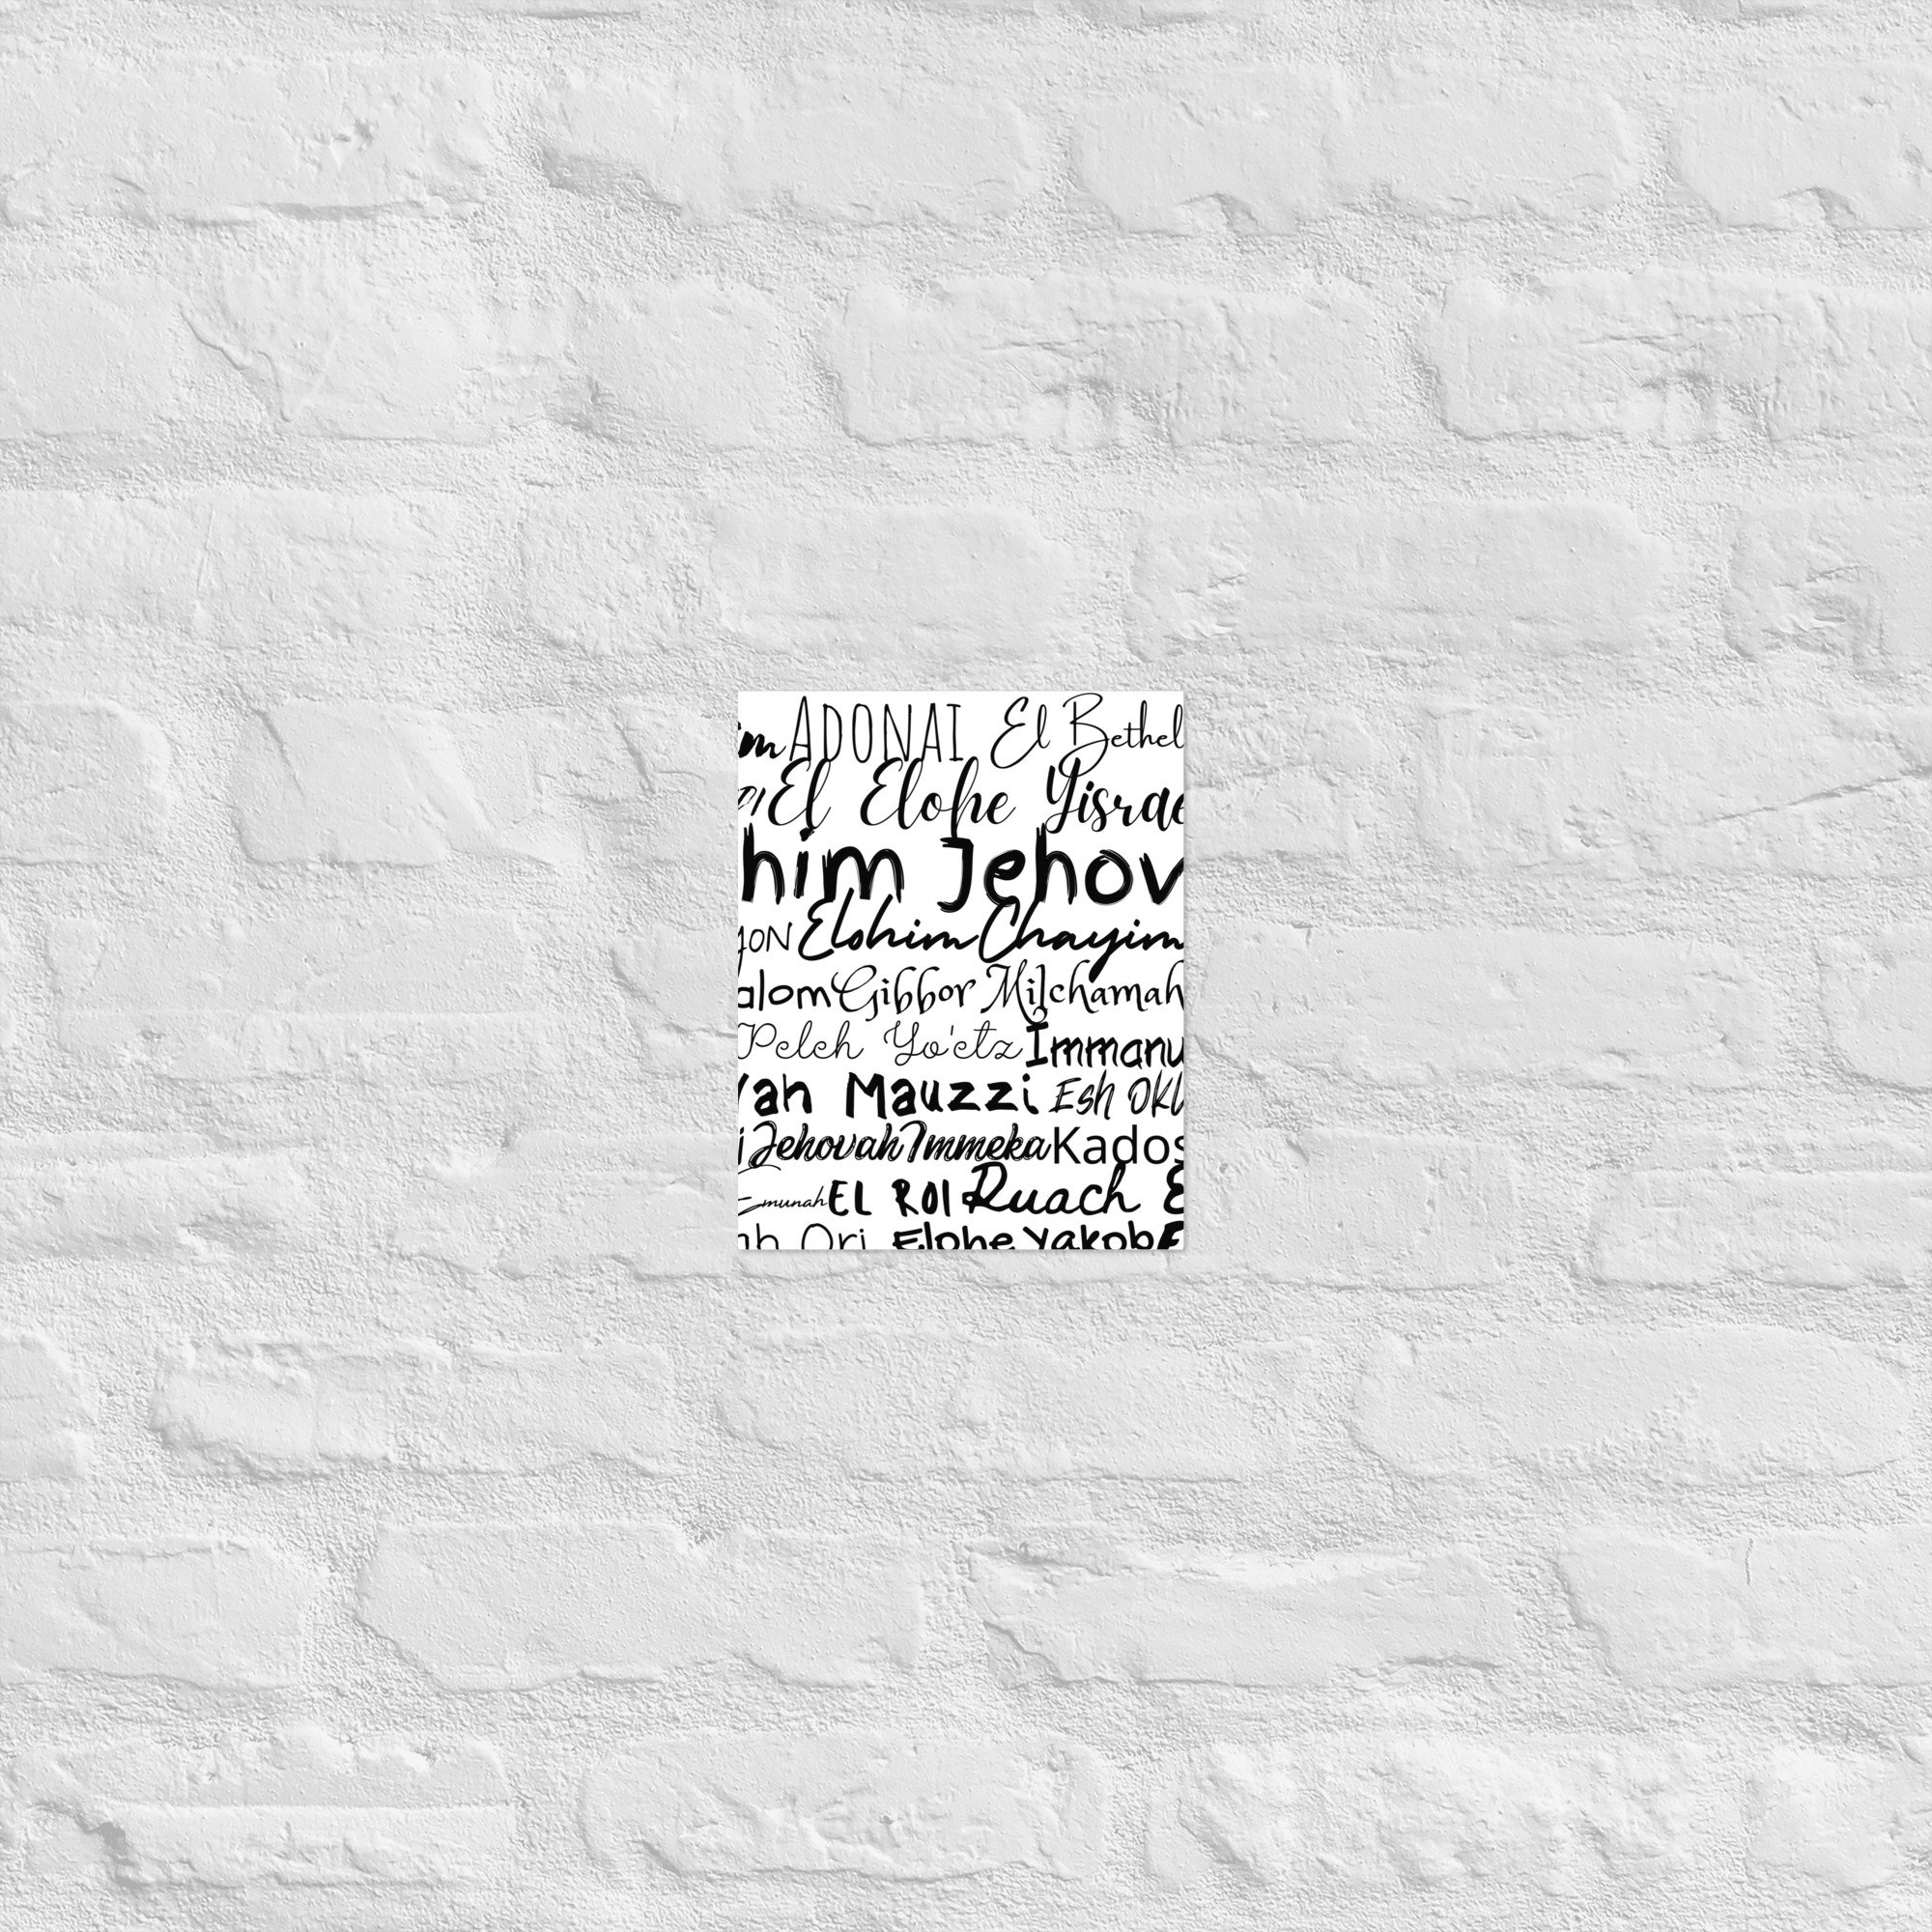 im ADONAI El Bethel
El Elohe Yisrae
him Jehov
yon Elohim Chayim
alom Gibbor Milchamah
Peleh Yo'etz Immanu
vah Mauzzi Esh Okl
i Jehovah Immeka Kados
Emunah EL ROI Ruach E
ah Ori Elohe Yakob E